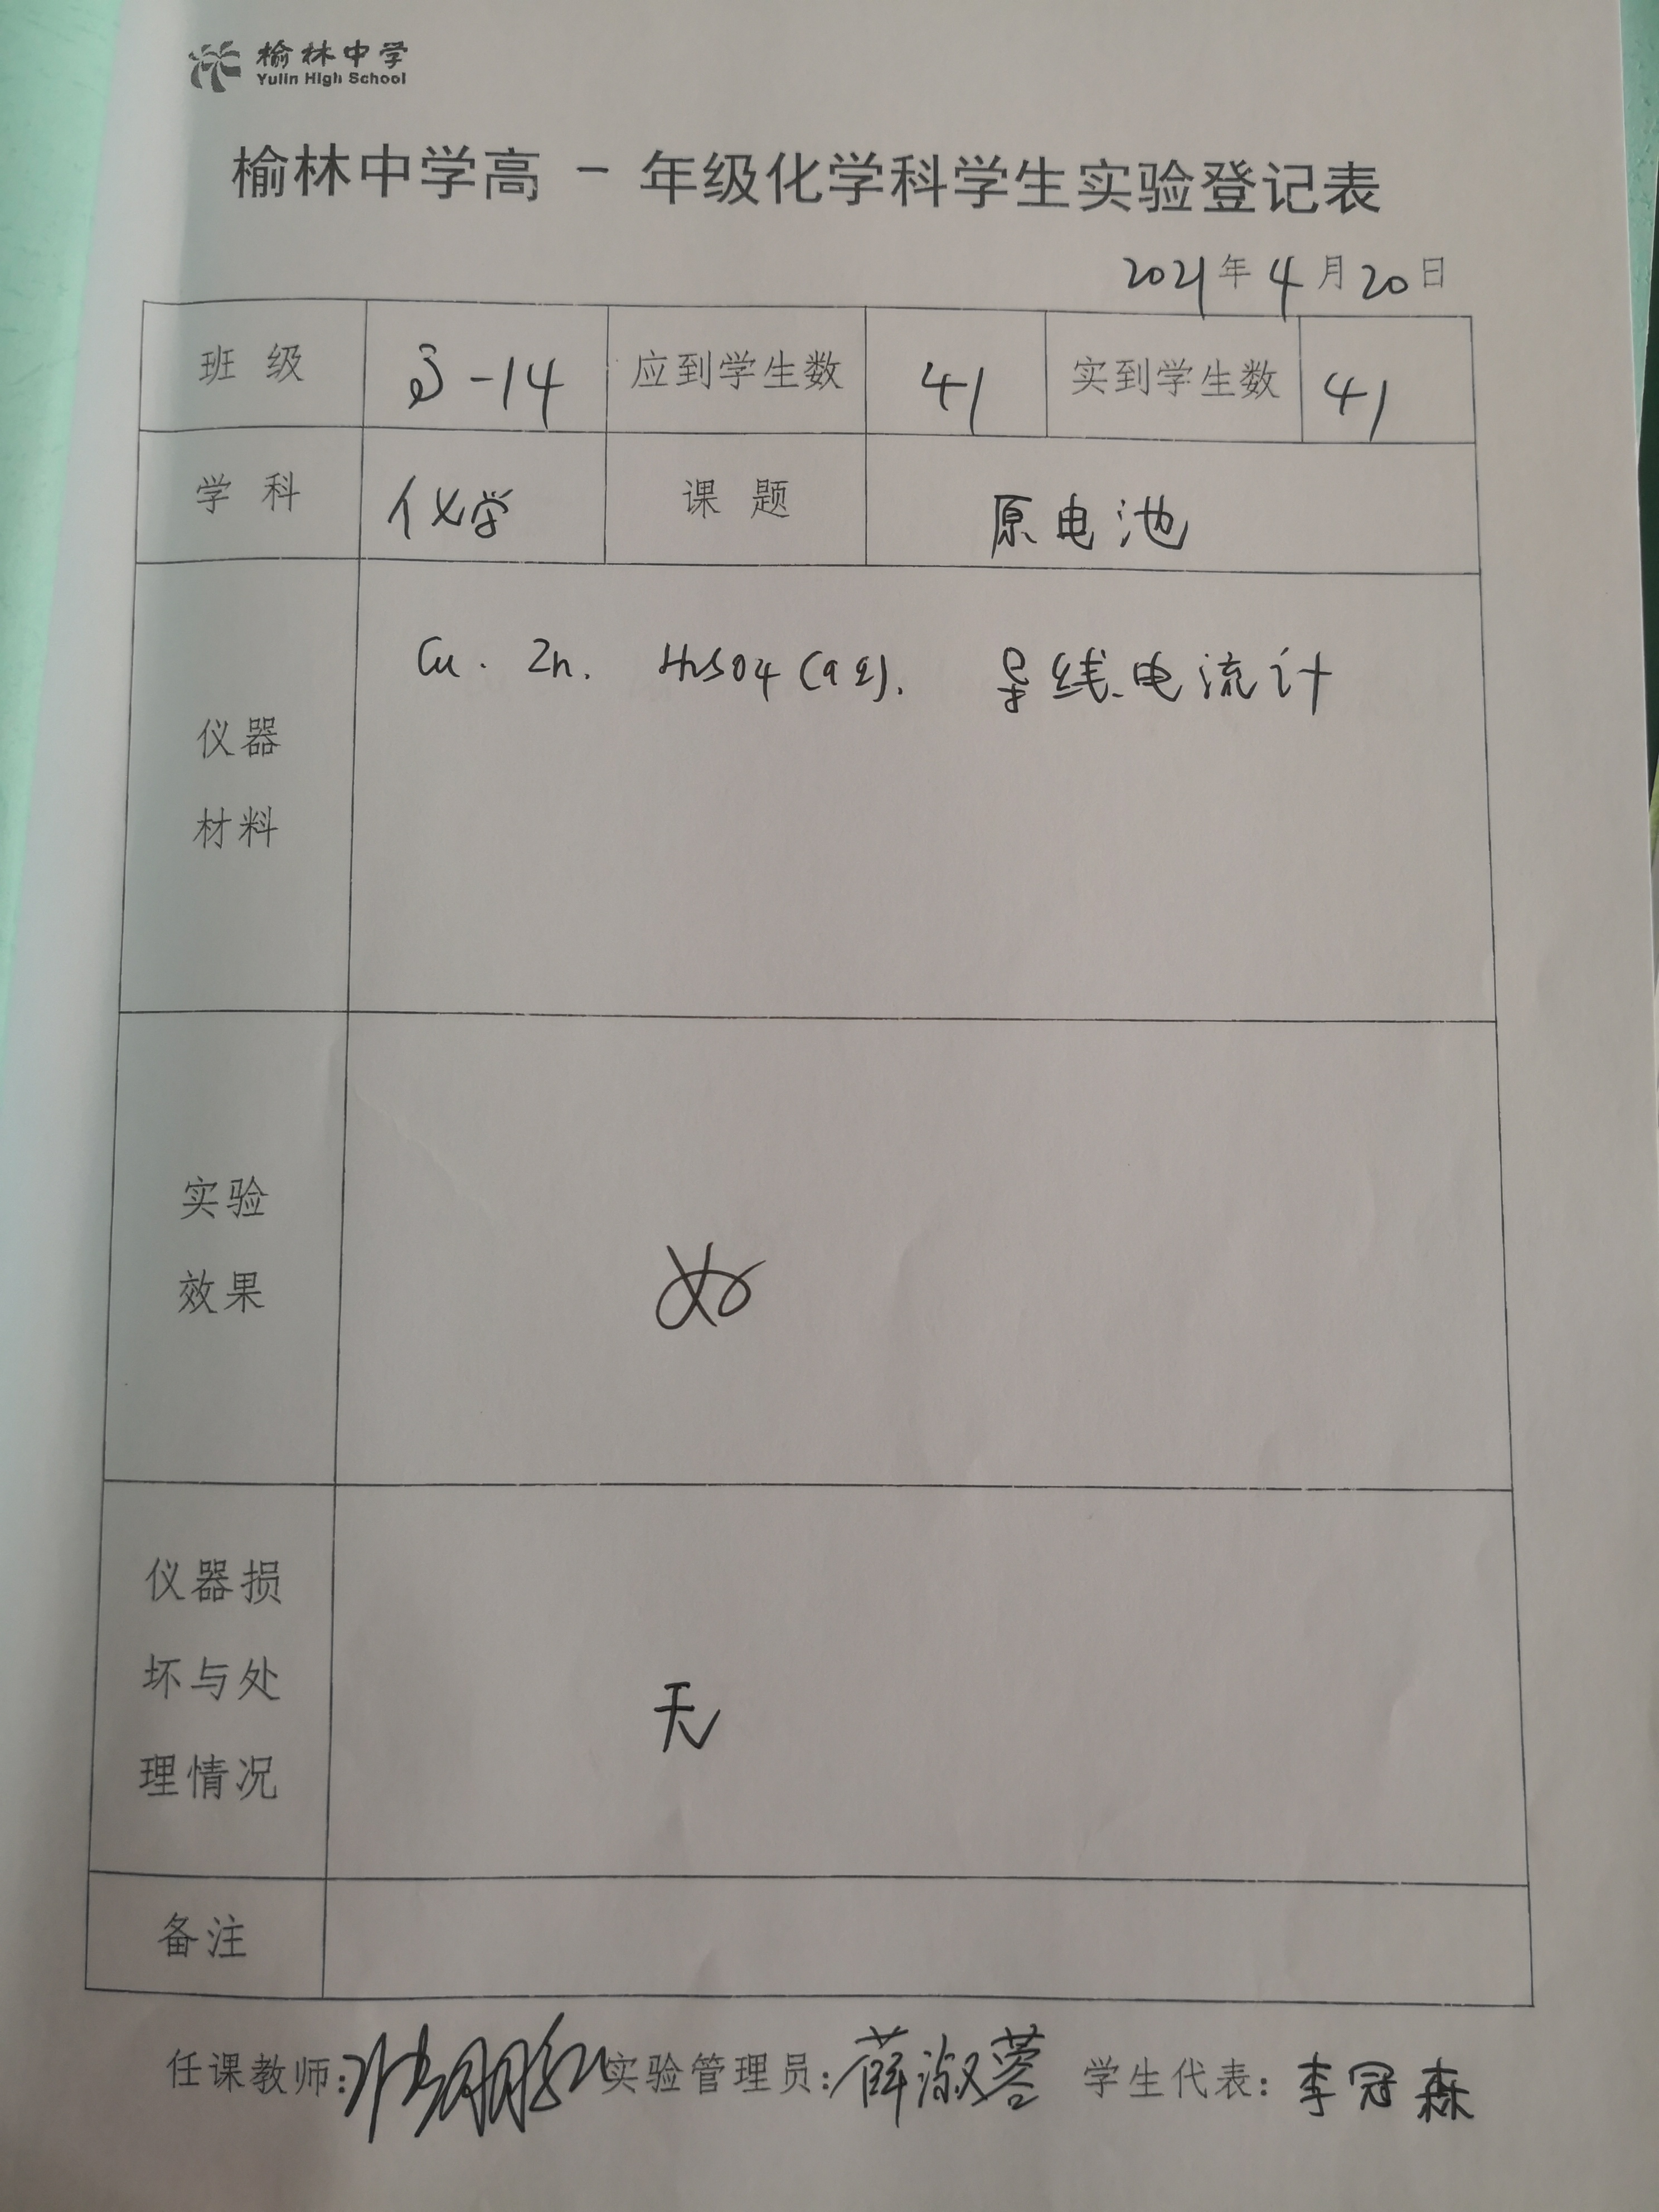 榆林中学
Yulin High School
榆林中学高 一 年级化学科学生实验登记表
2021年4月20日
班 级 -14 应到学生数 41 实到学生数 41
学 科 化学 课 题 原电池
Cu. Zn. H2SO4(aq). 导线.电流计
仪器
材料
实验
效果
好
仪器损
坏与处
理情况
无
备注
任课教师: 实验管理员:薛淑蓉 学生代表:李冠森